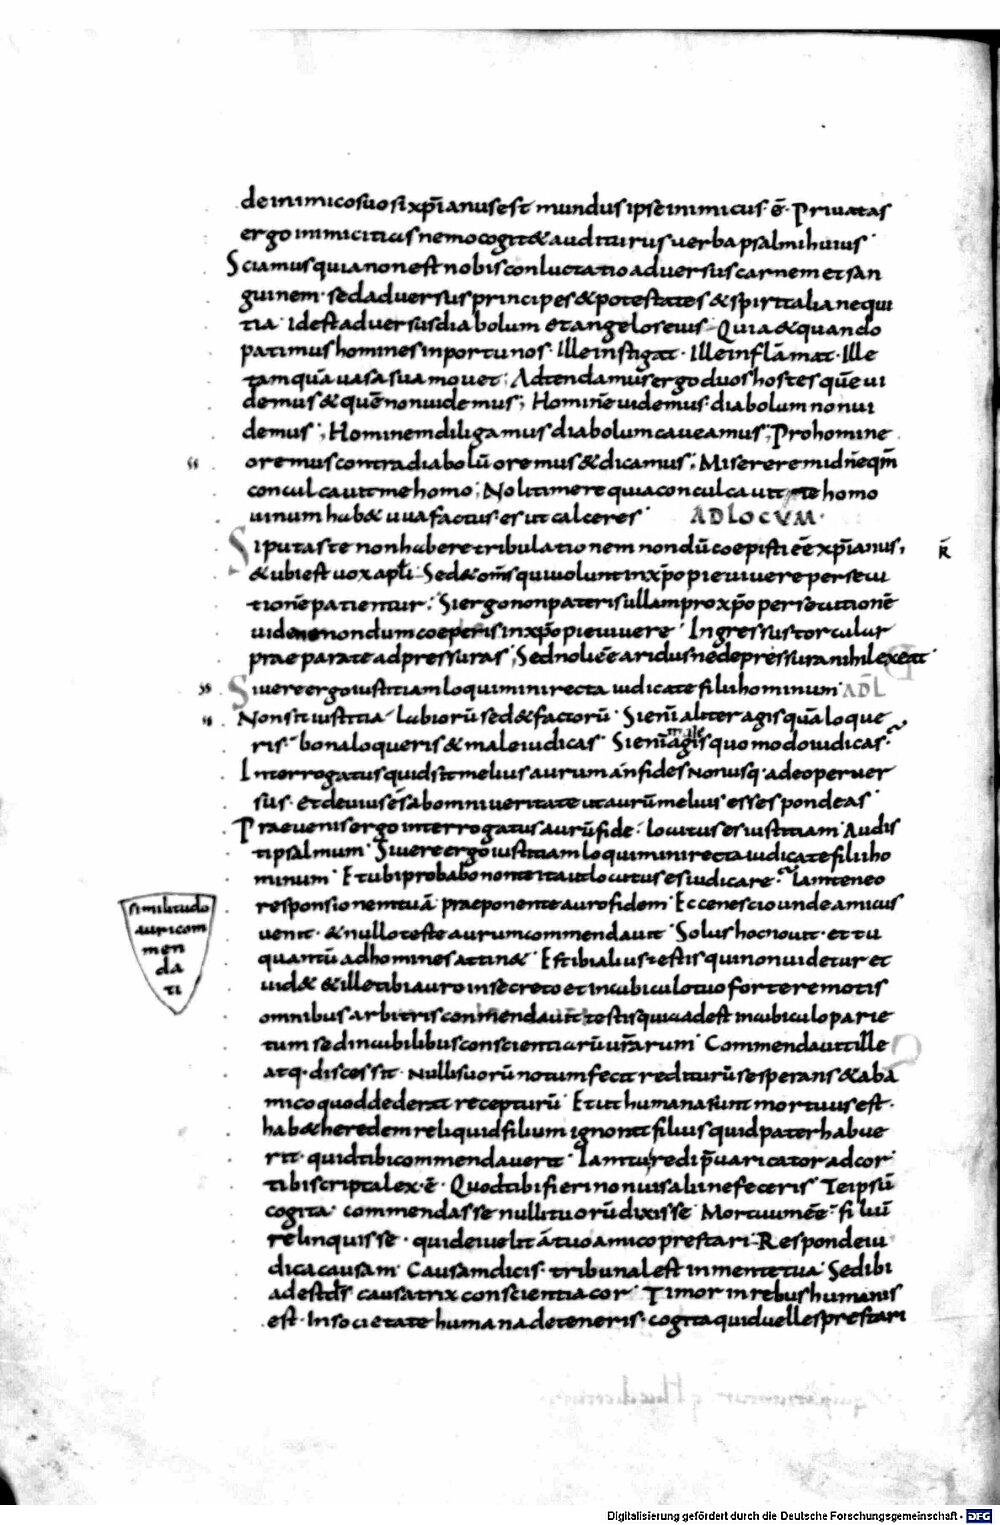 de inimico suo si xp̄ianus est mundus ipse inimicus · ē · Priuatas
ergo inimicitias nemo cogit& auditurus uerba psalmi huius ·
Sciamus quia non est nobis conluctatio aduersus carnem et san
guinem · sed aduersus principes & potestates & spiritalia nequi
tia · Id est aduersus diabolum et angelos eius · Quia & quando
patimur homines inportunos · Ille instigat · Ille inflāmat · Ille
tamquā uasa sua mouet ; Adtendamus ergo duos hostes quē ui
demus & quē non uidemus ; Hominē uidemus · diabolum non ui
demus ; Hominem diligamus diabolum caueamus ; Pro homine
oremus contra diabolū oremus & dicamus ; Miserere mi dn̄e qm̄
conculcauit me homo ; Noli timere quia conculcauit te homo
uinum hab& uua factus es ut calceres · AD LOCVM ·
Si putas te non habere tribulationem nondū coepisti eē xp̄ianus ,
R̄
& ubi est uox apl̄i · Sed & om̄s qui uolunt in xp̄o pie uiuere persecu
tionē patientur · Si ergo non pateris ullam pro xp̄o persecutionē
uide ne nondum coeperis in xp̄o pie uiuere · Ingressus torcular
praepara te ad pressuras ; Sed noli eē aridus ne de pressura nihil exeat
Si uere ergo iustitiam loquimini recta iudicate filii hominum · AD̄L
Non sit iustitia labiorū sed & factorū · Si enī aliter agis quā loque
ris · bona loqueris & male iudicas · Si enī male agis quomodo iudicas ·
Interrogatus quid sit melius aurum an fides Non usq · adeo peruer
sus · et deuius es ab omni ueritate ut aurū melius esse spondeas ·
Praeuenis ergo interrogatus aurū fide · locutus es iustitiam · Audis
ti psalmum · Si uere ergo iustitiam loquimini recta iudicate filii ho
minum · Et ubi probabo non te ita ut locutus es iudicare · Iam teneo
responsionem tuā praeponente auro fidem · Ecce nescio unde amicus
uenit · & nullo teste aurum commendauit · Solus hoc nouit · et tu
quantū ad homines attin& · Est ibi alius testis qui non uidetur et
uid& & ille tibi auro in secreto et in cubiculo tuo forte remotis
omnibus arbitris conmendauit testis qui adest in cubiculo parie
tum sed in cubilibus conscientiarū ur̄arum · Commendauit ille
atq · discessit · nulli suorū notum fecit rediturū se sperans & ab a
mico quod dederat recepturū · Et ut humana sunt mortuus est ·
hab& heredem reliquid filium ignorat filius quid pater habue
rit · quid tibi commendauerit · Iam tu redi p̄uaricator ad cor ·
tibi scripta lex · ē · Quod tibi fieri non uis alii ne feceris · Te ipsū
cogita · commendasse nulli tuorū dixisse · Mortuum eē · filiū
relinquisse · quid ei uelis a tuo amico prestari · Responde iu
dica causam · Causam dicis · tribunal est in mente tua · Sed ibi
adest ds̄ causatrix conscientia cor · Timor in rebus humanis
est · In societate humana deteneris · cogita quid uelles prestari
similitudo
auri com
men
da
ti
Digitalisierung gefördert durch die Deutsche Forschungsgemeinschaft - DFG